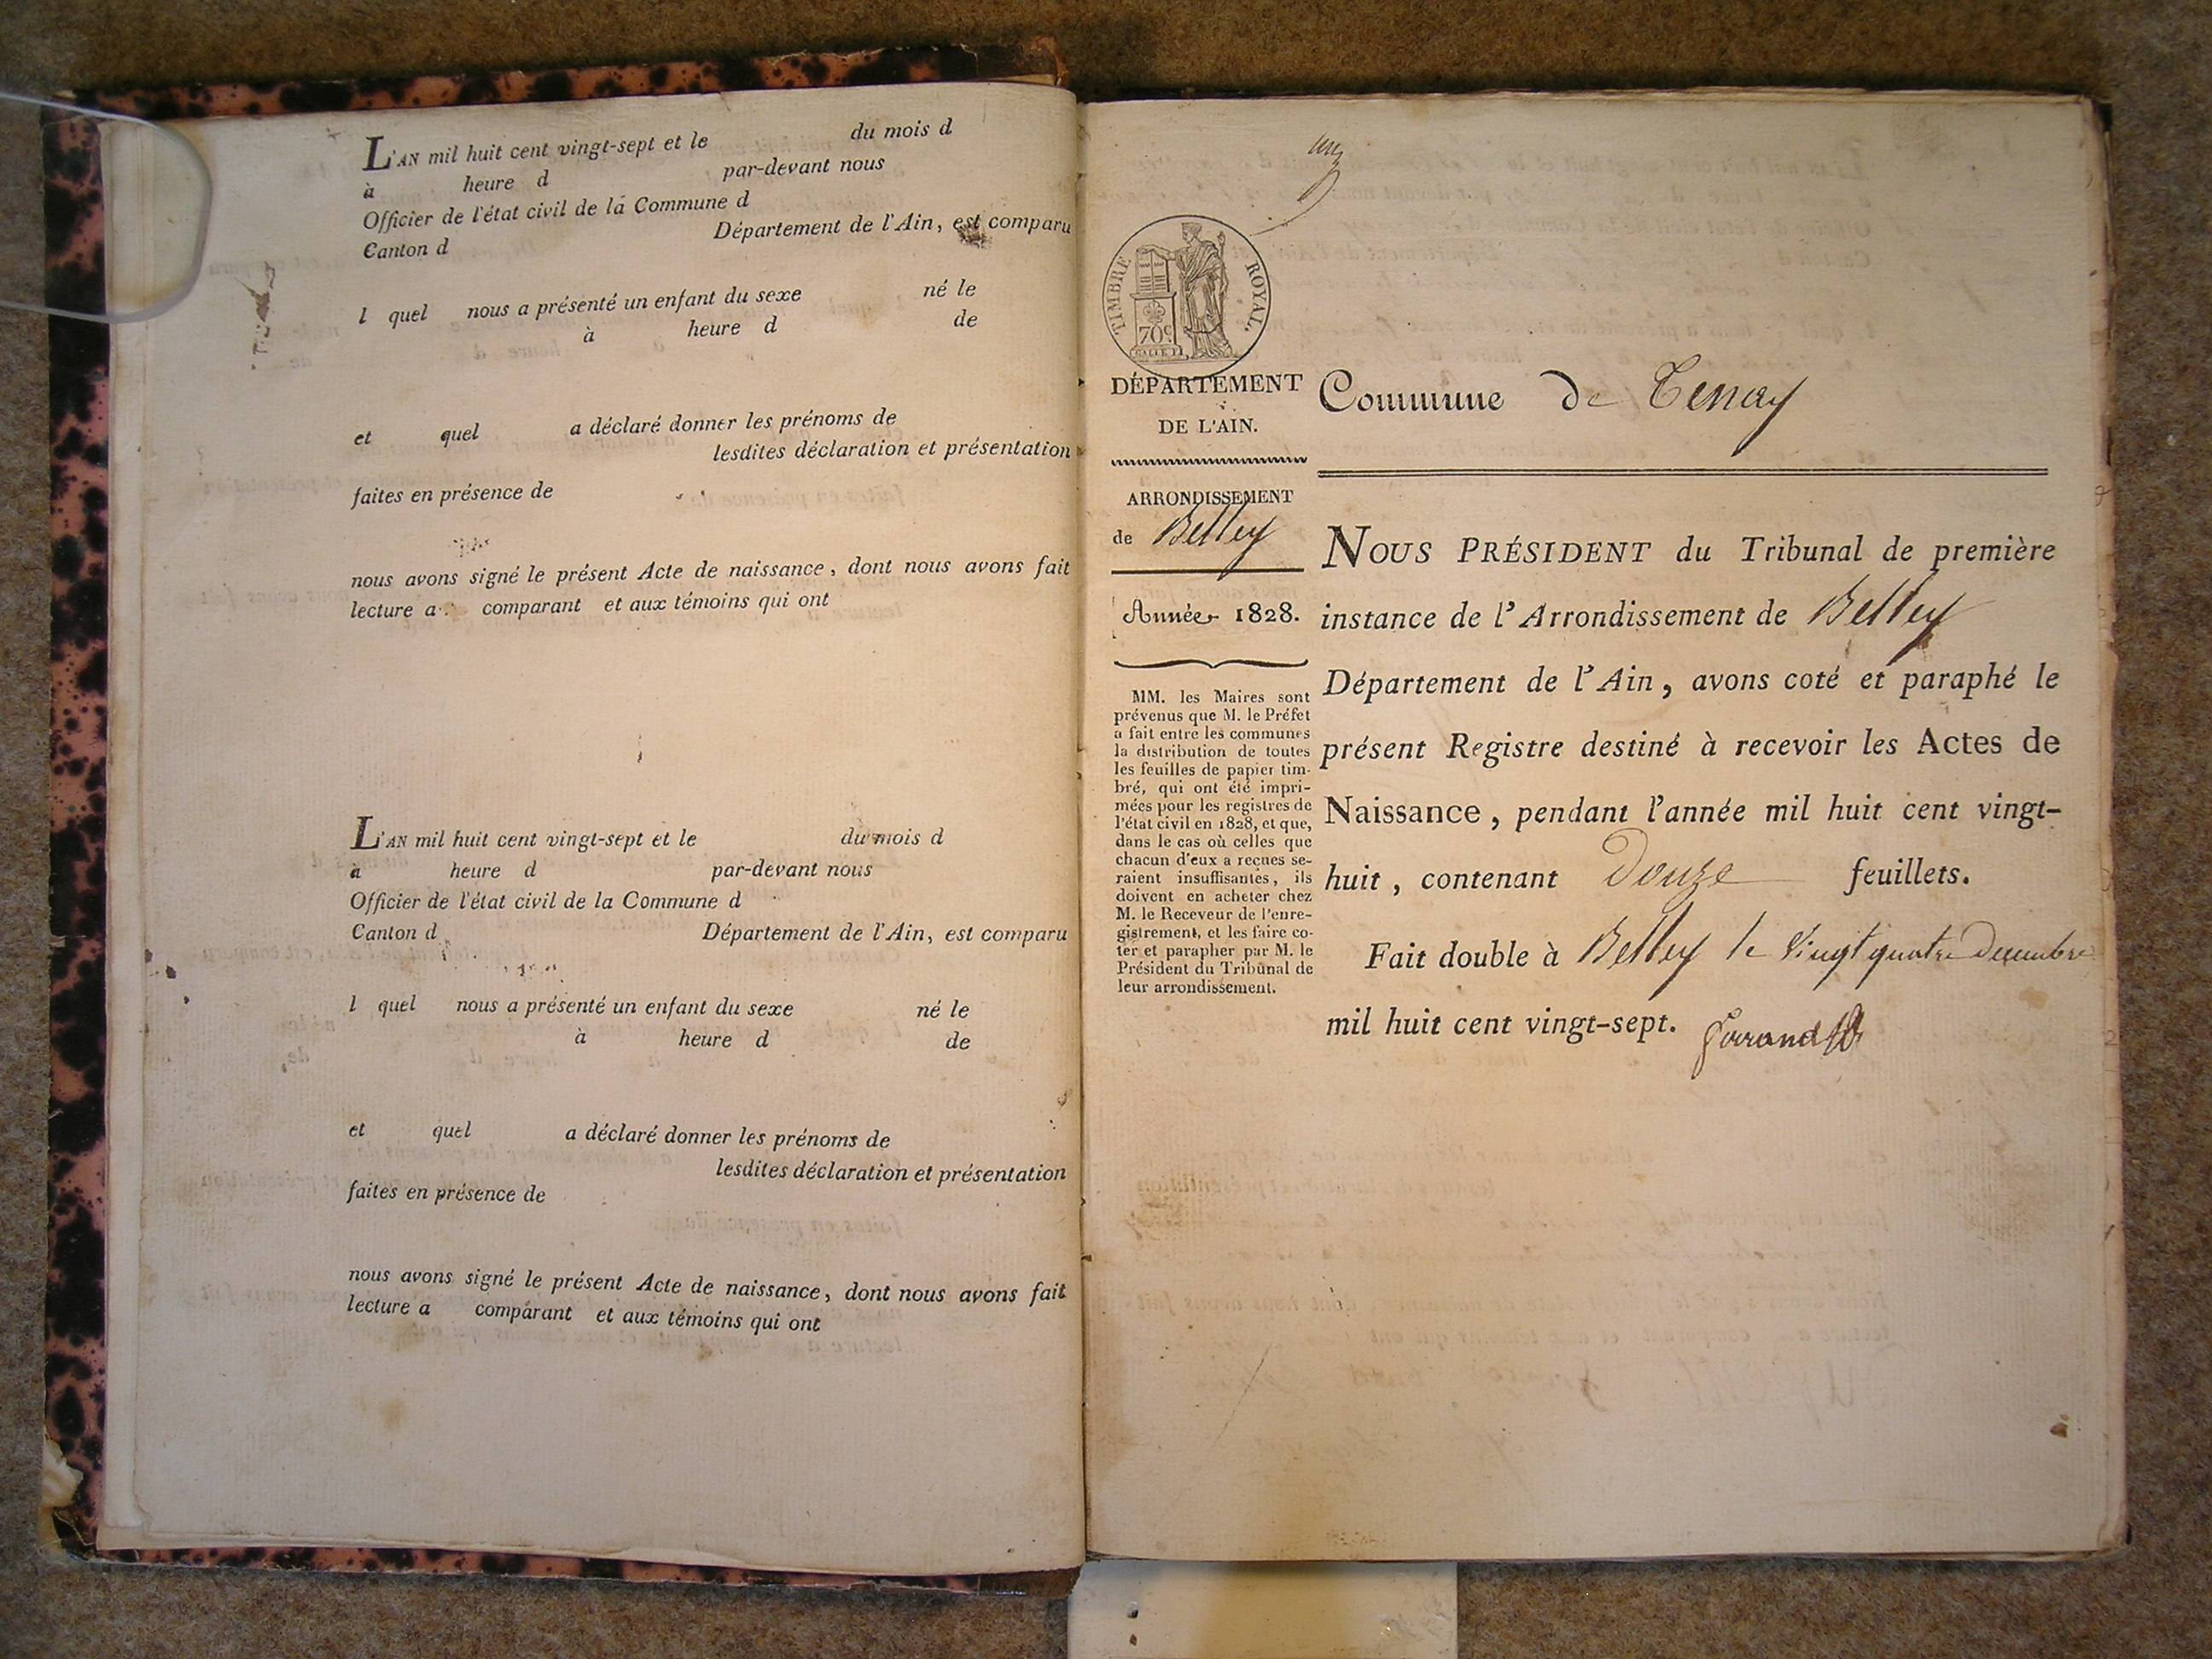 L'AN mil huit cent vingt-sept et le du mois d
à heure d par-devant nous
Officier de l'état civil de la Commune d
Canton d Département de l'Ain, est comparu
l quel nous a présenté un enfant du sexe né le
à heure d de
et quel a déclaré donner les prénoms de
lesdites déclaration et présentation
faites en présence de
nous avons signé le présent Acte de naissance, dont nous avons fait
lecture a comparant et aux témoins qui ont
L'AN mil huit cent vingt-sept et le du mois d
à heure d par-devant nous
Officier de l'état civil de la Commune d
Canton d Département de l'Ain, est comparu
l quel nous a présenté un enfant du sexe né le
à heure d de
et quel a déclaré donner les prénoms de
lesdites déclaration et présentation
faites en présence de
nous avons signé le présent Acte de naissance, dont nous avons fait
lecture a comparant et aux témoins qui ont
un
TIMBRE ROYAL.
70c
DÉPARTEMENT
DE L'AIN.
ARRONDISSEMENT
de Belley
Année 1828.
MM. les Maires sont
prévenus que M. le Préfet
a fait entre les communes
la distribution de toutes
les feuilles de papier tim-
bré, qui ont été impri-
mées pour les registres de
l'état civil en 1828, et que,
dans le cas où celles que
chacun d'eux a reçues se-
raient insuffisantes, ils
doivent en acheter chez
M. le Receveur de l'enre-
gistrement, et les faire co-
ter et parapher par M. le
Président du Tribunal de
leur arrondissement.
Commune de Tenay
NOUS PRÉSIDENT du Tribunal de première
instance de l'Arrondissement de Belley
Département de l'Ain, avons coté et paraphé le
présent Registre destiné à recevoir les Actes de
Naissance, pendant l'année mil huit cent vingt-
huit, contenant Douze feuillets.
Fait double à Belley le Vingt quatre Decembre
mil huit cent vingt-sept.